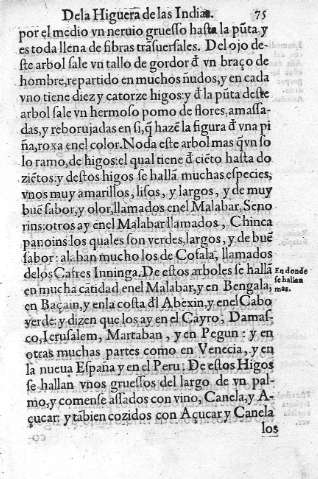 De la Higuera de las Indias. 75
por el medio vn neruio gruesso hasta la pũta, y
es toda llena de fibras trãsuersales. Del ojo de-
ste arbol sale vn tallo de gordor đ vn braço de
hombre, repartido en muchos ñudos, y en cada
vno tiene diez y catorze higos: y đ la pũta deste
arbol sale vn hermoso pomo de flores, amassa-
das, y reborujadas en si, q̃ hazẽ la figura đ vna pi
ña, roxa enel color. No da este arbol mas q̃ vn so
lo ramo, de higos: el qual tiene đ ciẽto hasta do
ziẽtos: y destos higos se hallã muchas especies,
vnos muy amarillos, lisos, y largos, y de muy
buẽ sabor, y olor, llamados enel Malabar, Seno
rins: otros ay enel Malabar llamados, Chinca
panoins los quales son verdes, largos, y de buẽ
sabor: alaban mucho los de Cofala, llamados
de los Cafres Inninga. De estos arboles se hallã
En donde
se hallan
mas.
en mucha cãtidad enel Malabar, y en Bengala,
en Baçain, y en la costa đl Abexin, y enel Cabo
verde: y dizen que los ay en el Cayro, Damas-
co, Ierusalem, Martaban, y en Pegun: y en
otras muchas partes como en Venecia, y en
la nueua España y en el Peru; De estos Higos
se hallan vnos gruessos del largo de vn pal-
mo, y comense assados con vino, Canela, y A-
çucar: y tãbien cozidos con Açucar y Canela
los